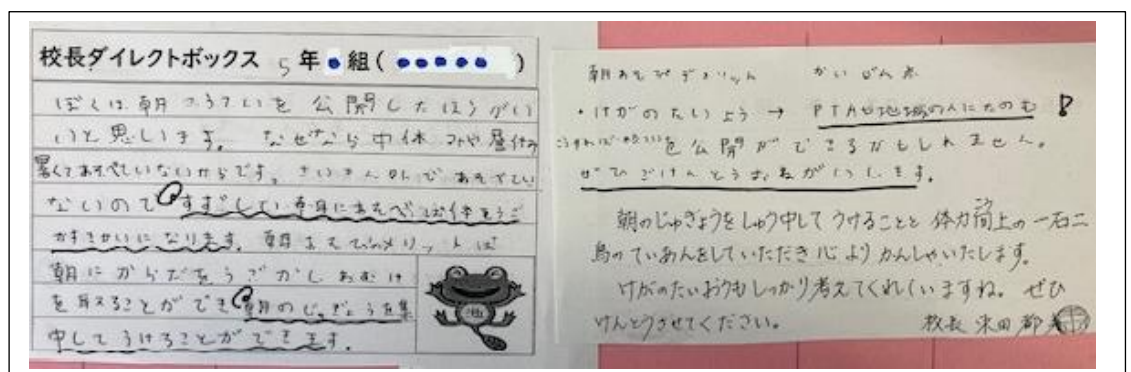 校長ダイレクトボックス 5年 組( )
ぼくは朝こうていを公開したほうがい
いと思います。なぜなら中休みや昼休み
暑くてあそべていないからです。さいきん外であそべてい
ないのですずしい朝にあそべば体をうご
かすきかいになります。朝あそびのメリットは
朝にからだをうごかしねむけ
を覚えることができ朝のじゅぎょうを集
中してうけることができます。
朝あそびデメリット かいぜん点
・けがのたいよう → PTAや地域の人にたのむ!
こうすれば を公開ができるかもしれません。
ぜひごけんとうおねがいします。
朝のじゅぎょうをしゅう中してうけることと体力向上の一石二
コウ
鳥のていあんをしていただき心よりかんしゃいたします。
けがのたいおうもしっかり考えてくれていますね。ぜひ
けんとうさせてください。 校長 米田